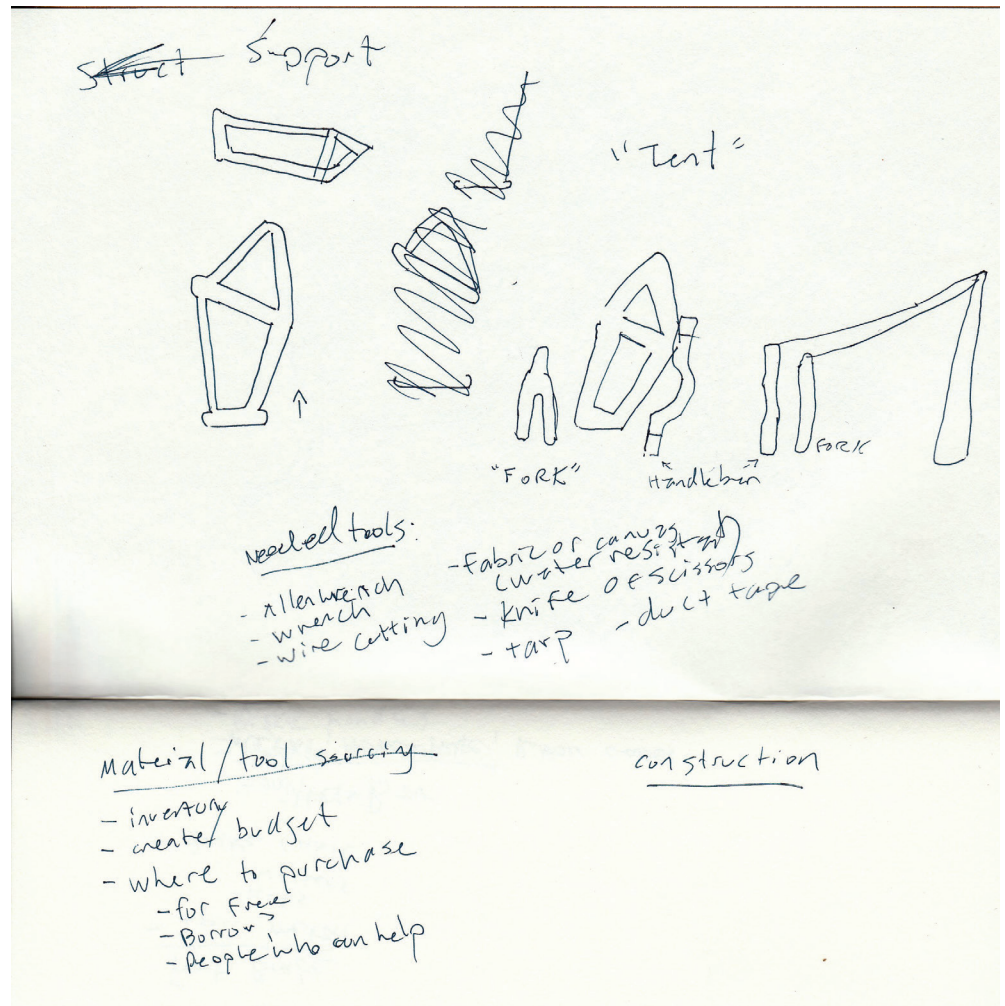 Struct Support
"Tent"
"FORK"
Handlebar
FORK
Needed tools:
- Allen wrench
- wrench
- wire cutting
- Fabric or canvas
(water resistant)
- knife or scissors
- tarp
- duct tape
Material/tool sourcing
- inventory
- create budget
- where to purchase
- for Free
- Borrow
- People who can help
construction